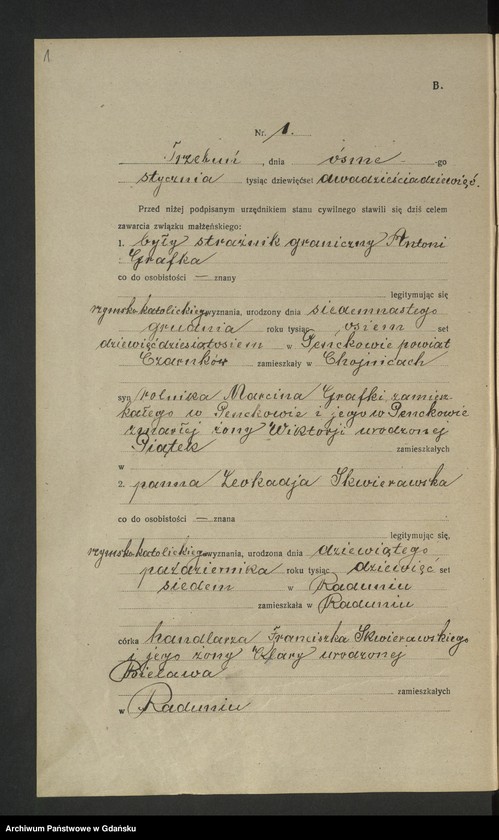 1
B.
Nr. 1.
Trzebuń, dnia ósme -go
stycznia tysiąc dziewięćset dwadzieściadziewięć.
Przed niżej podpisanym urzędnikiem stanu cywilnego stawili się dziś celem
zawarcia związku małżeńskiego:
1. były strażnik graniczny Antoni
Grafka
co do osobistości — znany
legitymując się
rzymsko katolickiego wyznania, urodzony dnia siedemnastego
grudnia roku tysiąc osiem set
dziewięćdziesiątosiem w Penckowie powiat
Czarnków zamieszkały w Chojnicach
syn rolnika Marcina Grafki, zamiesz-
kałego w Penckowie i jego w Penckowie
zmarłej żony Wiktorji urodzonej
Piątek zamieszkałych
w
2. panna Leokadja Skwierawska
co do osobistości — znana
legitymując się,
rzymsko katolickiego wyznania, urodzona dnia dziewiątego
października roku tysiąc dziewięć set
siedem w Raduniu
zamieszkała w Raduniu
córka handlarza Franciszka Skwierawskiego
i jego żony Klary urodzonej
Bielawa
zamieszkałych
w Raduniu
Archiwum Państwowe w Gdańsku